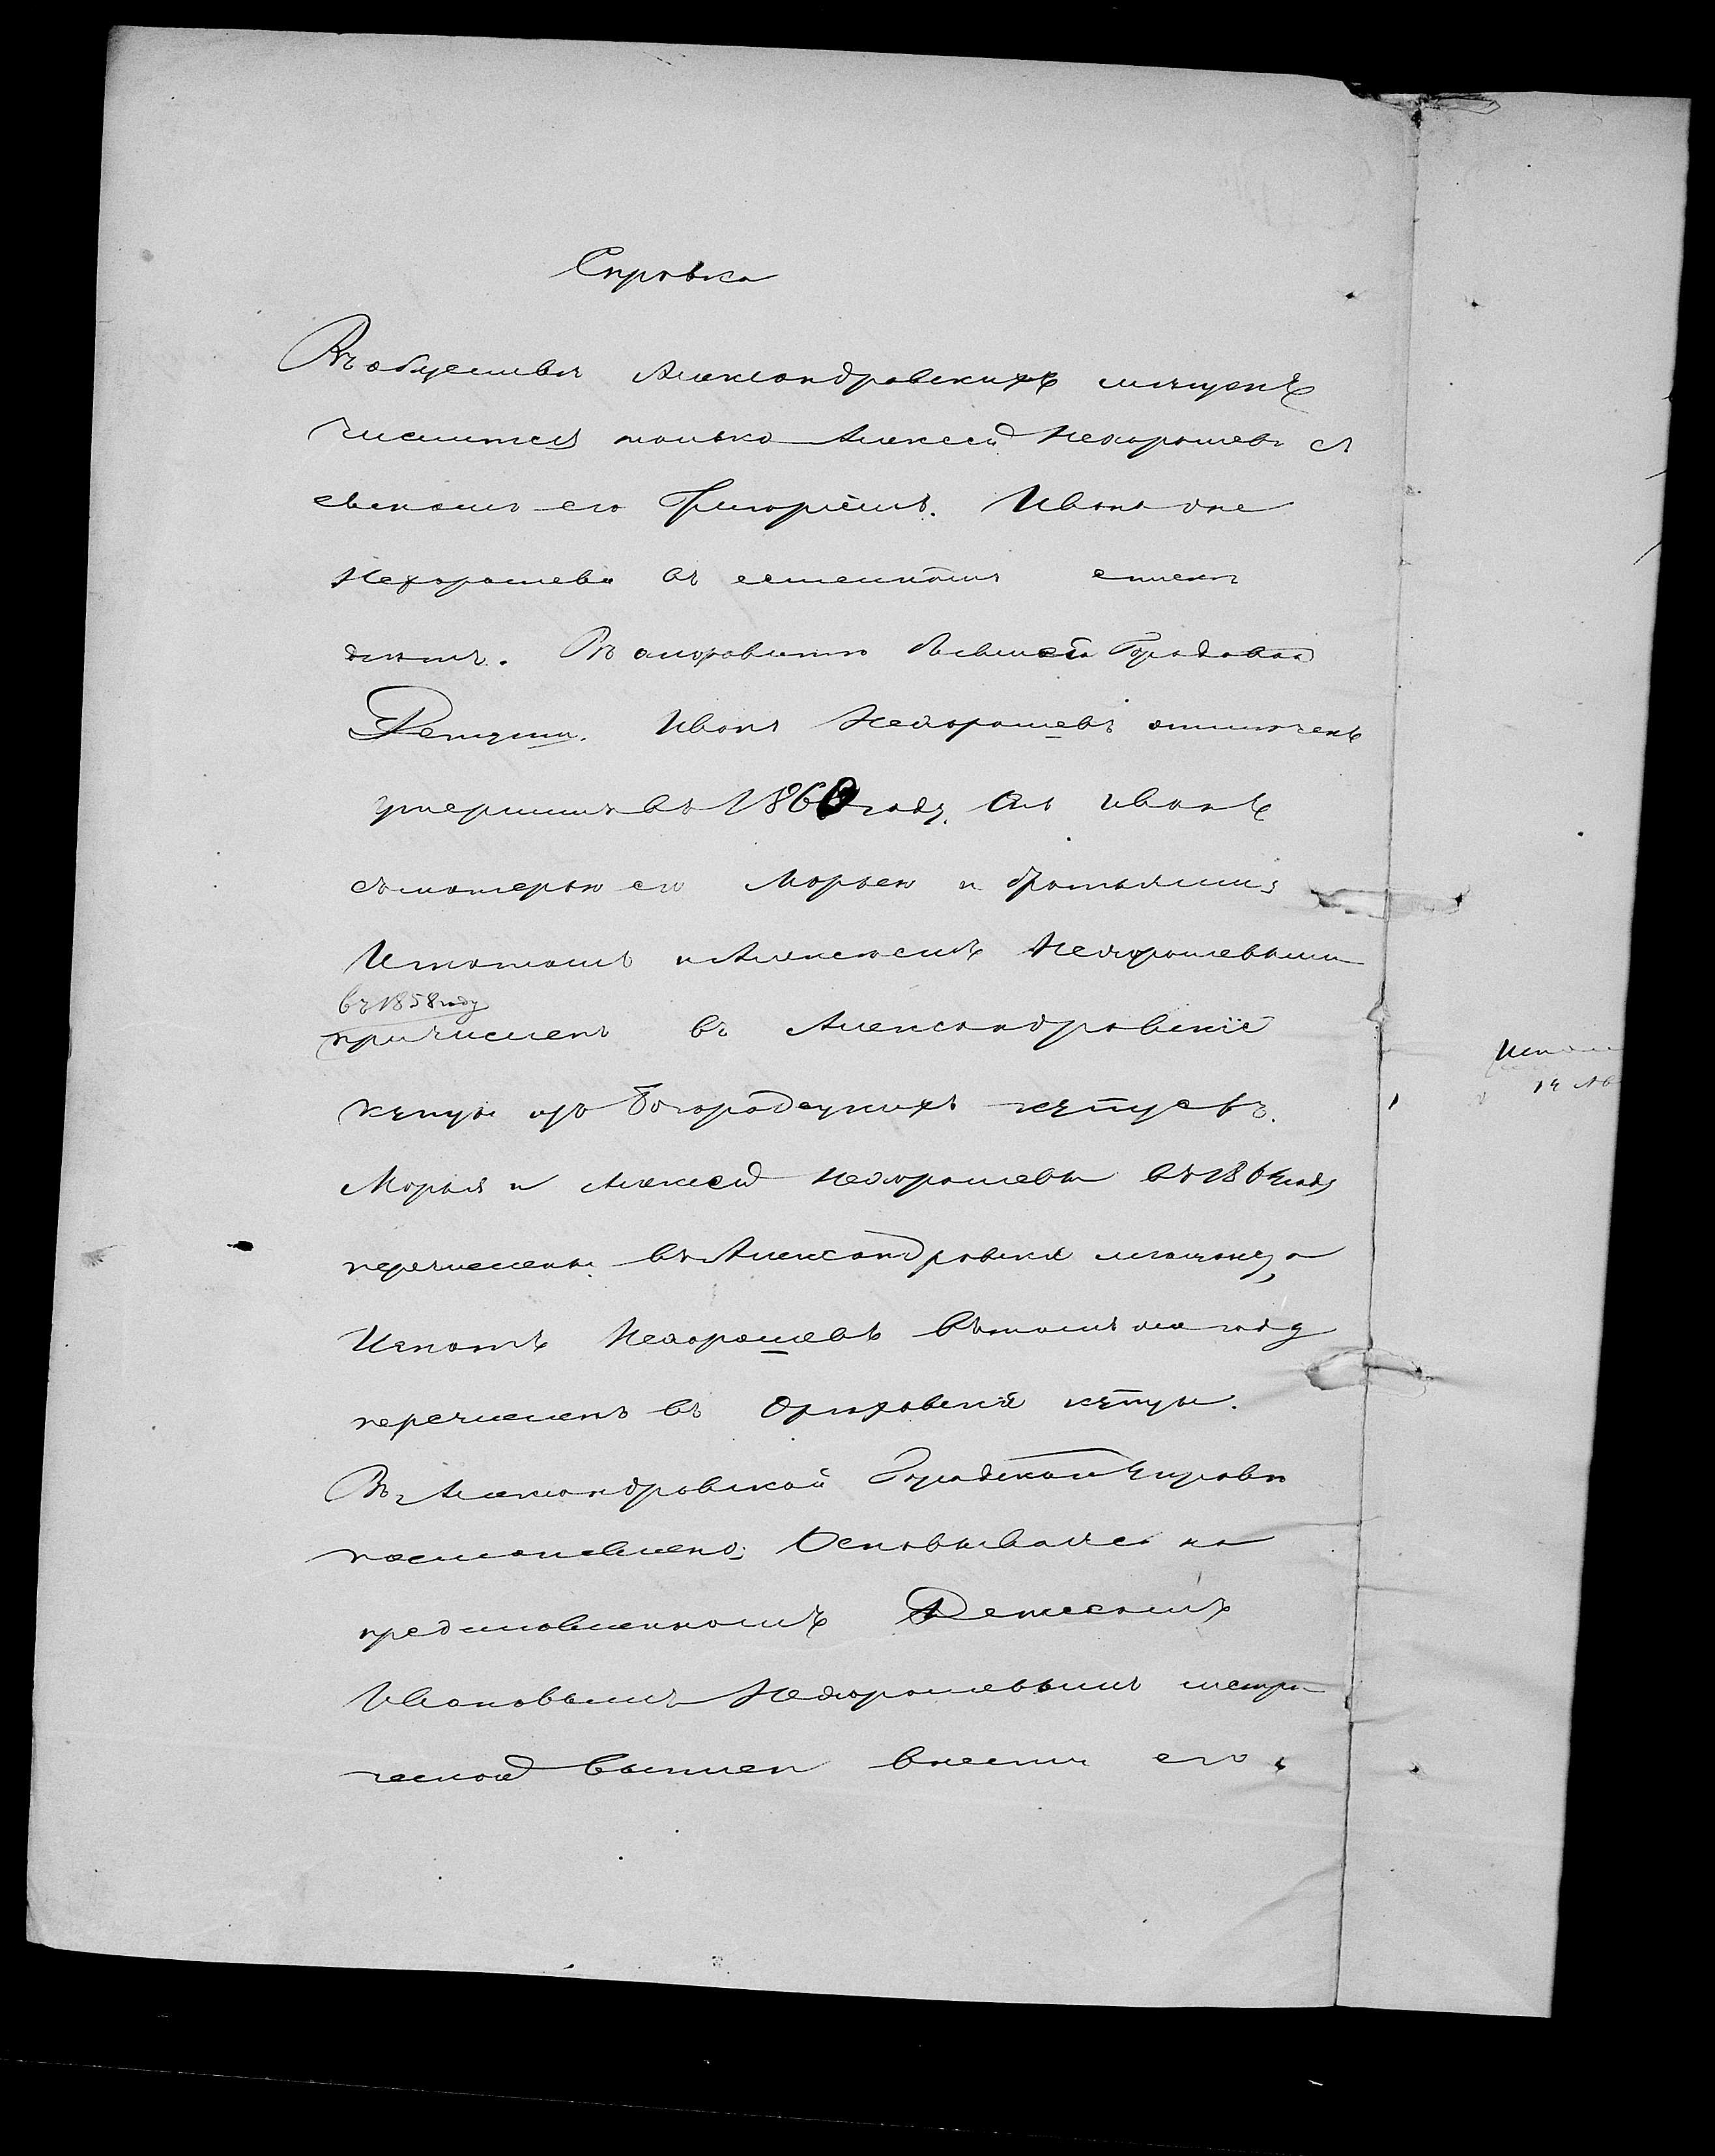 Справка
Въ обществѣ Александровскихъ мѣщанъ
числится только Алексѣй Нехорошевъ съ
сыномъ его Григоріемъ. Ивана же
Нехорошева въ семейномъ спискѣ
нѣтъ. Въ бывшей Городовой
Ратуши. Иванъ Нехорошевъ отмѣченъ
умершимъ въ 1860 году. Онъ Иванъ
съ матерью его Марьею и братьями
Игнатомъ и Алексѣемъ Нехорошевыми
въ 1858 году
причисленъ въ Александровскіе
купцы изъ Богородецкихъ купцовъ.
Марья и Алексѣй Нехорошевы въ 1864 году
перечислены въ Александровскіе мѣщане, а
Игнатъ Нехорошевъ въ томъ же году
перечисленъ въ Орѣховскіе купцы.
Въ Александровской Городской Управѣ
постановлено: Основываясь на
представленномъ
Ивановымъ Нехорошевымъ метри
ческой выписи внести его